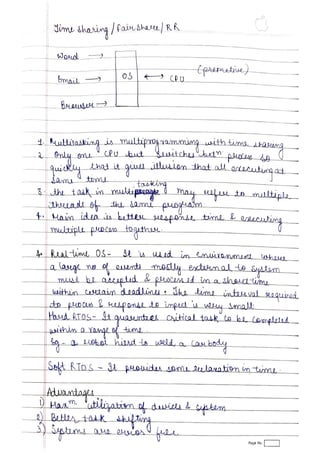 Time sharing / Fair Share / RR
(preemptive)
Word →
Email → OS ↔ CPU
Browser →
1. Multitasking is multiprogramming with time sharing
2. Only one CPU but switches betn process so
quickly that it gives illusion that all executing at
same time
3. the task in multitasking may refer to multiple
threads of the same program
4. Main idea is better response time & executing
multiple process together
* Real time OS - It is used in environment where
a large no of events mostly external to system
must be accepted & processed in a short time
within certain deadlines. The time interval required
to process & response to input is very small
Hard RTOS - It guarantees critical task to be completed
within a range of time.
Eg - a robot hired to weld a car body
Soft RTOS - It provides some relaxation in time.
Advantages
1) Maxm utilization of devices & system
2) Better task shifting
3) Systems are error free
Page No.